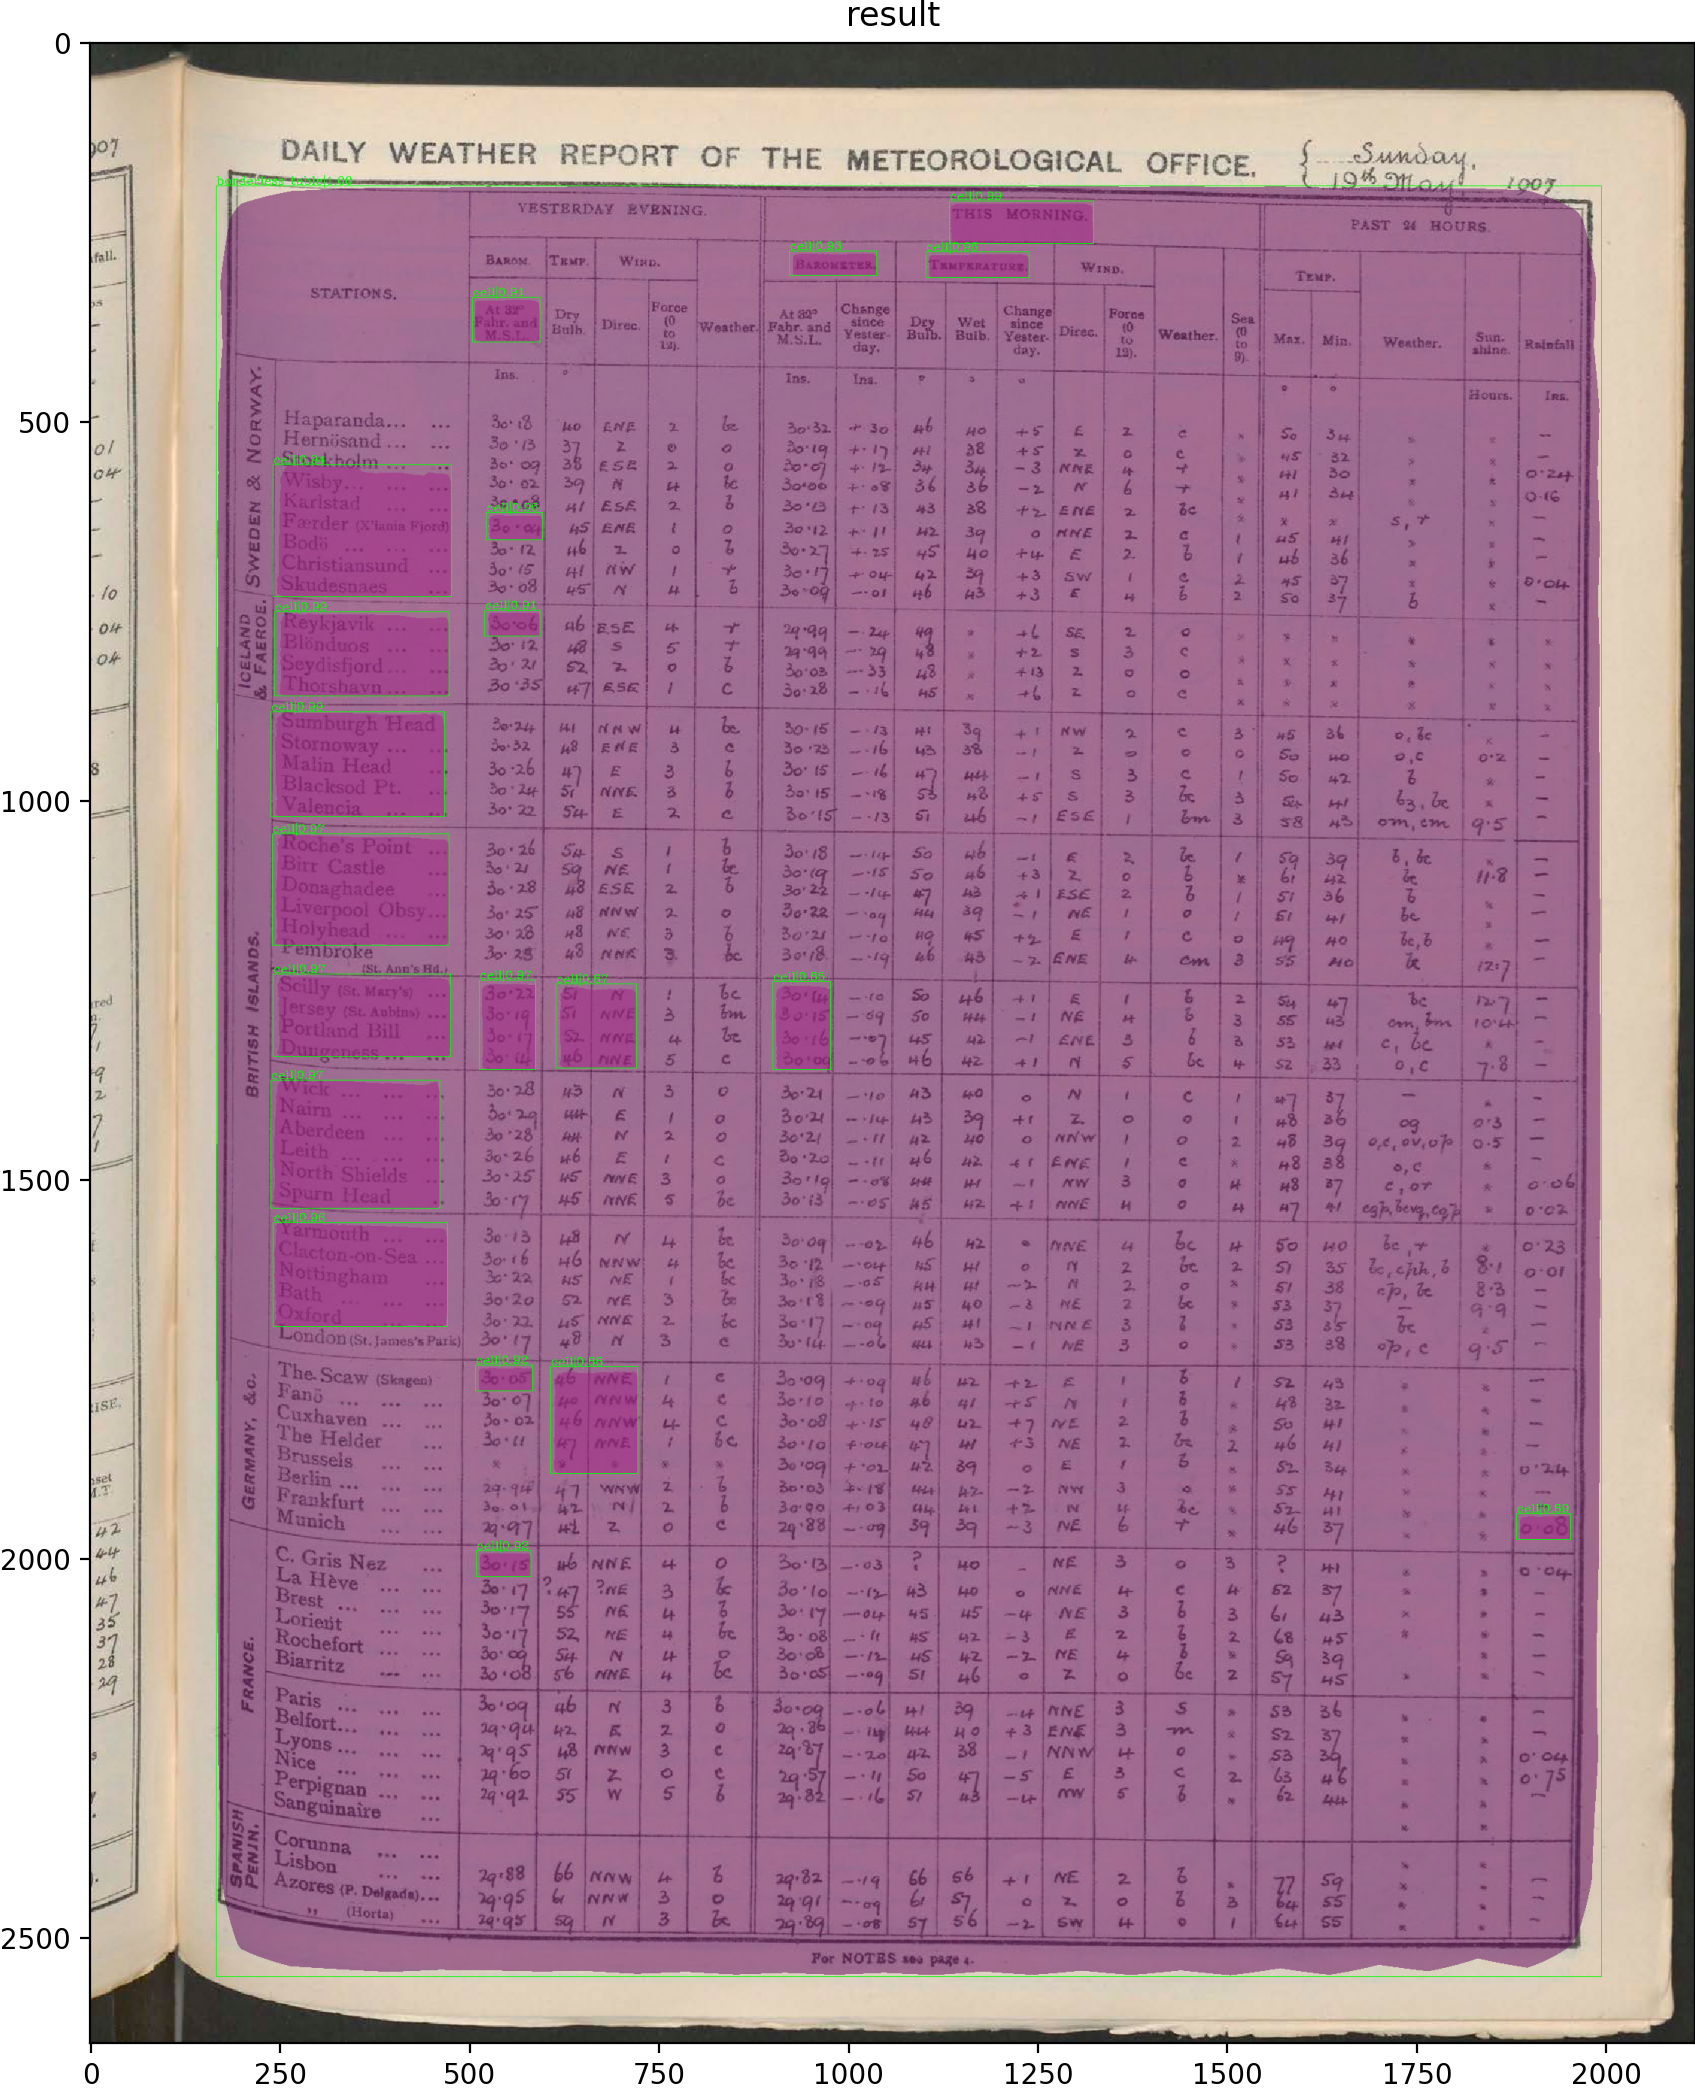 result
DAILY WEATHER REPORT OF THE METEOROLOGICAL OFFICE.
Sunday,
19th May, 1907
YESTERDAY EVENING. THIS MORNING. PAST 24 HOURS.
STATIONS. BAROM. TEMP. WIND. Weather. BAROMETER. TEMPERATURE. WIND. Weather. Sea (0 to 9). TEMP. Weather. Sunshine. Rainfall
At 32° Fahr. and M.S.L. Dry Bulb. Direc. Force (0 to 12). At 32° Fahr. and M.S.L. Change since Yesterday. Dry Bulb. Wet Bulb. Change since Yesterday. Direc. Force (0 to 12). Max. Min.
Ins. ° Ins. Ins. ° ° ° ° ° Hours. Ins.
SWEDEN & NORWAY.
Haparanda... ... 30.18 40 ENE 2 bc 30.32 +.30 46 40 +5 E 2 c
Hernösand ... ... 30.13 37 Z 0 0 30.19 +.17 41 38 +5 Z 0 c
Stockholm ... 30.09 38 ESE 2 0 30.07 +.12 34 34 -3 NNE 4
Wisby... ... ... 30.02 39 N 4 bc 30.00 +.08 36 36 -2 N 6
Karlstad ... ... 30.08 41 ESE 2 b 30.13 +.13 43 38 +2 ENE 2 bc
Færder (X'iania Fjord) 30.04 45 ENE 1 0 30.12 +.11 42 39 0 NNE 2 c
Bodö ... ... ... 30.12 46 Z 0 b 30.27 +.25 45 40 +4 E 2 b 1
Christiansund ... 30.15 41 NW 1 30.17 +.04 42 39 +3 SW 1 c 2
Skudesnaes ... 30.08 45 N 4 b 30.09 -.01 46 43 +3 E 4 b 2
ICELAND & FAEROE.
Reykjavik ... ... 30.06 46 ESE 4 29.99 -.24 49 * +6 SE 2 0
Blönduos ... ... 30.12 48 S 5 29.99 -.29 48 * +2 S 3 c
Seydisfjord... ... 30.21 52 Z 0 b 30.03 -.33 48 * +13 Z 0 0
Thorshavn ... ... 30.35 47 ESE 1 c 30.28 -.16 45 * +6 Z 0 c
BRITISH ISLANDS.
Sumburgh Head 30.24 41 NNW 4 bc 30.15 -.13 41 39 +1 NW 2 c 3 45 36 o, bc
Stornoway ... ... 30.32 48 ENE 3 c 30.23 -.16 43 38 -1 Z 0 0 0 50 40 o, c 0.2
Malin Head ... 30.26 47 E 3 b 30.15 -.16 47 44 -1 S 3 c 1 50 42 b
Blacksod Pt. ... 30.24 51 NNE 3 b 30.15 -.18 53 48 +5 S 3 bc 3 54 41
Valencia ... ... 30.22 54 E 2 c 30.15 -.13 51 46 -1 ESE 1 bm 3 58 43 om, cm 9.5
Roche's Point ... 30.26 54 S 1 b 30.18 -.14 50 46 -1 E 2 bc 1 59 39 b, bc
Birr Castle ... 30.21 59 NE 1 bc 30.19 -.15 50 46 +3 Z 0 b * 61 42 bc 11.8
Donaghadee ... 30.28 48 ESE 2 b 30.22 -.14 47 43 +1 ESE 2 b 1 51 36 b
Liverpool Obsy... 30.25 48 NNW 2 0 30.22 -.09 44 39 -1 NE 1 0 1 51 41 bc
Holyhead ... ... 30.28 48 NE 3 b 30.21 -.10 49 45 +2 E 1 c 0 49 40 bc, b
Pembroke (St. Ann's Hd.) 30.25 48 NNE 3 bc 30.18 -.19 46 43 -2 ENE 4 cm 3 55 40 bc 12.7
Scilly (St. Mary's) ... 30.22 51 N 1 bc 30.14 -.10 50 46 +1 E 1 b 2 54 47 bc 12.7
Jersey (St. Aubins) ... 30.19 51 NNE 3 bm 30.15 -.09 50 44 -1 NE 4 b 3 55 43 cm, bm 10.4
Portland Bill ... 30.17 52 NNE 4 bc 30.16 -.07 45 42 -1 ENE 3 b 3 53 41 c, bc
Dungeness ... ... 30.14 46 NNE 5 c 30.09 -.06 46 42 +1 N 5 bc 4 52 33 o, c 7.8
Wick ... ... ... 30.28 43 N 3 0 30.21 -.10 43 40 0 N 1 c 1 47 37
Nairn ... ... ... 30.29 44 E 1 0 30.21 -.14 43 39 +1 Z 0 0 1 48 36 og 0.3
Aberdeen ... ... 30.28 44 N 2 0 30.21 -.11 42 40 0 NNW 1 0 2 48 39 o,c,ov,op 0.5
Leith ... ... ... 30.26 46 E 1 c 30.20 -.11 46 42 +1 ENE 1 c * 48 38 o, c
North Shields ... 30.25 45 NNE 3 0 30.19 -.08 44 41 -1 NW 3 0 4 48 37 c, or * 0.06
Spurn Head ... 30.17 45 NNE 5 bc 30.13 -.05 45 42 +1 NNE 4 0 4 47 41 * 0.02
Yarmouth ... ... 30.13 48 N 4 bc 30.09 -.02 46 42 0 NNE 4 bc 4 50 40 bc, r * 0.23
Clacton-on-Sea ... 30.16 46 NNW 4 bc 30.12 -.04 45 41 0 N 2 bc 2 51 35 8.1 0.01
Nottingham ... 30.22 45 NE 1 bc 30.18 -.05 44 41 -2 N 2 0 * 51 38 cp, bc 8.3
Bath ... ... ... 30.20 52 NE 3 bc 30.18 -.09 45 40 -3 NE 2 bc * 53 37 9.9
Oxford ... ... 30.22 45 NNE 2 bc 30.17 -.09 45 41 -1 NNE 3 b * 53 35 bc
London (St. James's Park) 30.17 48 N 3 c 30.14 -.06 44 43 -1 NE 3 0 * 53 38 op, c 9.5
GERMANY, &c.
The Scaw (Skagen) 30.05 46 NNE 1 c 30.09 +.09 46 42 +2 E 1 b 1 52 43
Fanö ... ... ... 30.07 40 NNW 4 c 30.10 +.10 46 41 +5 N 1 b * 48 32
Cuxhaven ... ... 30.02 46 NNW 4 c 30.08 +.15 48 42 +7 NE 2 b * 50 41
The Helder ... 30.11 47 NNE 1 bc 30.10 +.04 47 41 +3 NE 2 bc 2 46 41
Brussels ... ... * * * * * 30.09 +.02 42 39 0 E 1 b * 52 34 * * 0.24
Berlin ... ... ... 29.94 47 WNW 2 b 30.03 +.18 44 42 -2 NW 3 0 * 55 41
Frankfurt ... ... 30.01 42 N 2 b 30.00 +.03 44 41 +2 N 4 bc * 52 41
Munich ... ... 29.97 42 Z 0 c 29.88 -.09 39 39 -3 NE 6 * 46 37 * * 0.08
FRANCE.
C. Gris Nez ... 30.15 46 NNE 4 0 30.13 -.03 ? 40 - NE 3 0 3 ? 41 * * 0.04
La Hève ... ... 30.17 ?47 ?NE 3 bc 30.10 -.12 43 40 0 NNE 4 c 4 52 37
Brest ... ... ... 30.17 55 NE 4 b 30.17 -.04 45 45 -4 NE 3 b 3 61 43
Lorient ... ... 30.17 52 NE 4 bc 30.08 -.11 45 42 -3 E 2 b 2 68 45
Rochefort ... ... 30.09 54 N 4 0 30.08 -.12 45 42 -2 NE 4 b * 59 39
Biarritz ... ... 30.08 56 NNE 4 bc 30.05 -.09 51 46 0 Z 0 bc 2 57 45
Paris ... ... ... 30.09 46 N 3 b 30.09 -.06 41 39 -4 NNE 3 S * 53 36
Belfort... ... ... 29.94 42 E 2 0 29.86 44 40 +3 ENE 3 m * 52 37
Lyons ... ... ... 29.95 48 NNW 3 c 29.87 -.20 42 38 -1 NNW 4 0 * 53 39 * * 0.04
Nice ... ... ... 29.60 51 Z 0 c 29.57 -.11 50 47 -5 E 3 c 2 63 46 * * 0.75
Perpignan ... ... 29.92 55 W 5 b 29.82 -.16 51 43 -4 NW 5 b * 62 44
Sanguinaire ...
SPANISH PENIN.
Corunna ... ...
Lisbon ... ... 29.88 66 NNW 4 b 29.82 -.19 66 56 +1 NE 2 b * 77 59
Azores (P. Delgada)... 29.95 61 NNW 3 0 29.91 -.09 61 57 0 Z 0 b 3 64 55
" (Horta) ... 29.95 59 N 3 bc 29.89 -.08 57 56 -2 SW 4 0 1 64 55
For NOTES see page 4.